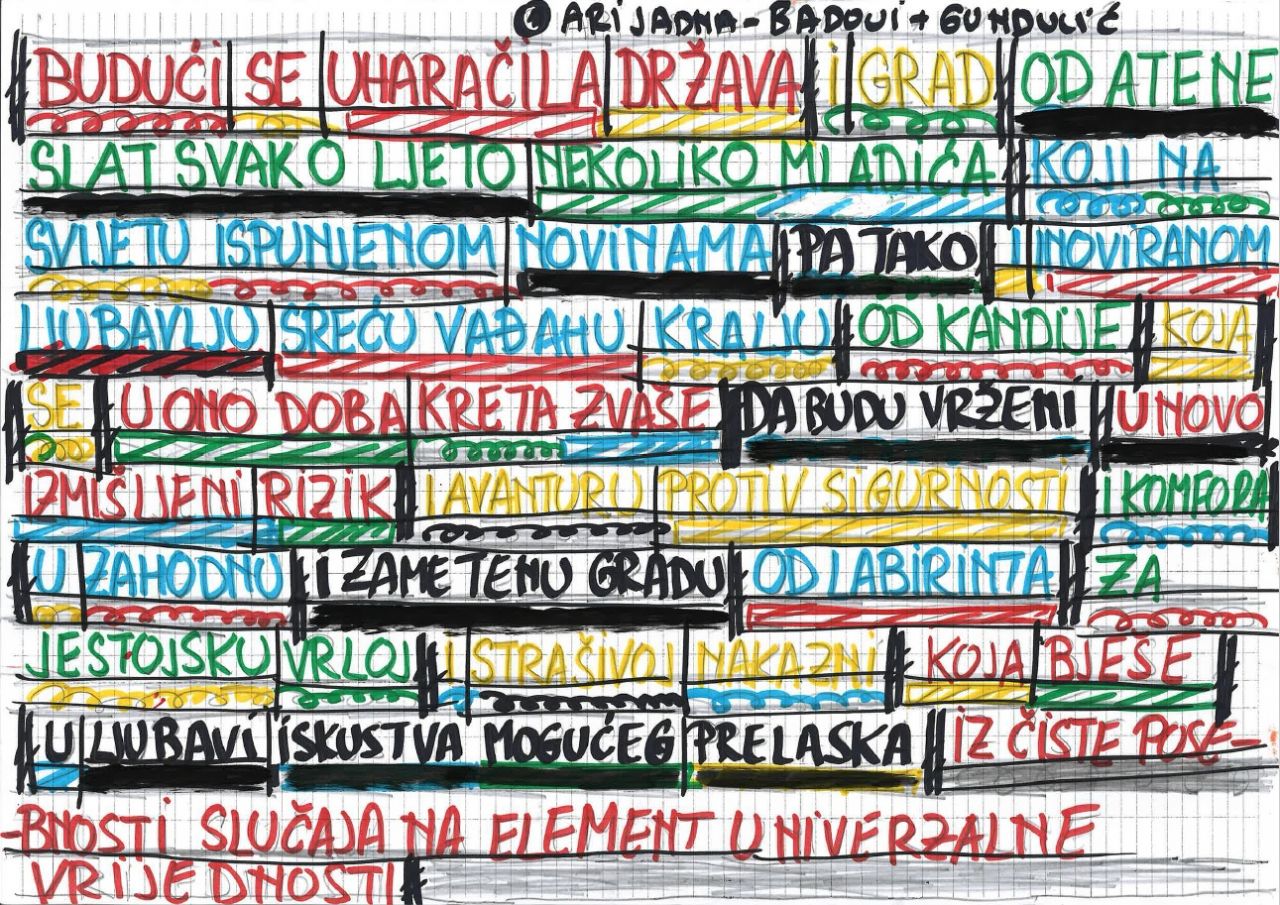 © ARIJADNA - BADOUI + GUNDULIĆ
BUDUĆI SE UHARAČILA DRŽAVA I GRAD OD ATENE
SLAT SVAKO LJETO NEKOLIKO MLADIĆA KOJI NA
SVIJETU ISPUNJENOM NOVINAMA PA TAKO I INOVIRANOM
LJUBAVLJU SREĆU VAĐAHU KRALJU OD KANDIJE KOJA
SE U ONO DOBA KRETA ZVAŠE DA BUDU VRŽENI U NOVO
IZMIŠLJENI RIZIK I AVANTURU PROTIV SIGURNOSTI I KOMFORA
U ZAHODNU I ZAMETENU GRADU OD LABIRINTA ZA
JESTOJSKU VRLOJ I STRAŠIVOJ NAKAZNI KOJA BJEŠE
U LJUBAVI ISKUSTVA MOGUĆEG PRELASKA IZ ČISTE POSE-
-BNOSTI SLUČAJA NA ELEMENT UNIVERZALNE
VRIJEDNOSTI